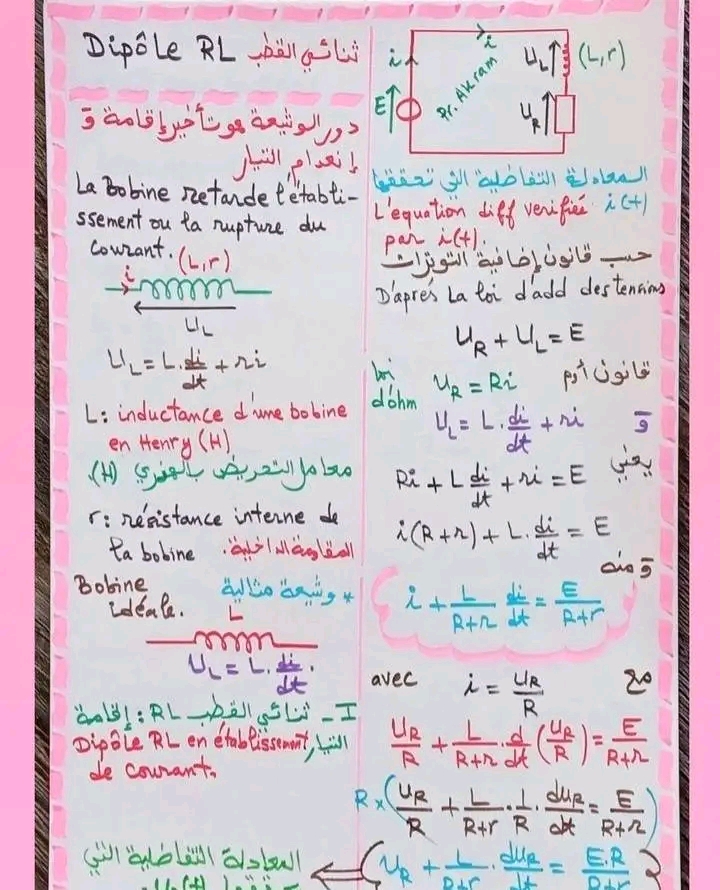 Dipôle RL ثنائي القطب
دور الوشيعة هو تأخير إقامة و
إنعدام التيار
La Bobine retarde l'établi-
ssement ou la rupture du
courant. (L,r)
i
UL
UL = L.di/dt + ri
L: inductance d'une bobine
en Henry (H)
معامل التحريض بالهنري (H).
r: résistance interne de
la bobine المقاومة الداخلية.
Bobine * وشيعة مثالية
idéale. L
UL = L.di/dt.
I - ثنائي القطب RL: إقامة
Dipôle RL en établissement التيار
de courant.
المعادلة التفاضلية التي
i
i
E
UL (L,r)
UR
Pr. Akram
المعادلة التفاضلية التي تحققها
L'equation diff verifiée i(t)
par i(t).
حسب قانون إضافية التوترات
D'après La loi d'add des tensions
UR + UL = E
loi d'ohm UR = Ri قانون أوم
UL = L.di/dt + ri و
Ri + L di/dt + ri = E يعني
i(R+r) + L.di/dt = E
ومنه
i + L/(R+r) di/dt = E/(R+r)
avec i = UR/R مع
UR/R + L/(R+r).d/dt(UR/R) = E/(R+r)
R×(UR/R + L/(R+r).1/R.dUR/dt = E/(R+r))
UR + L/(R+r).dUR/dt = E.R/(R+r)